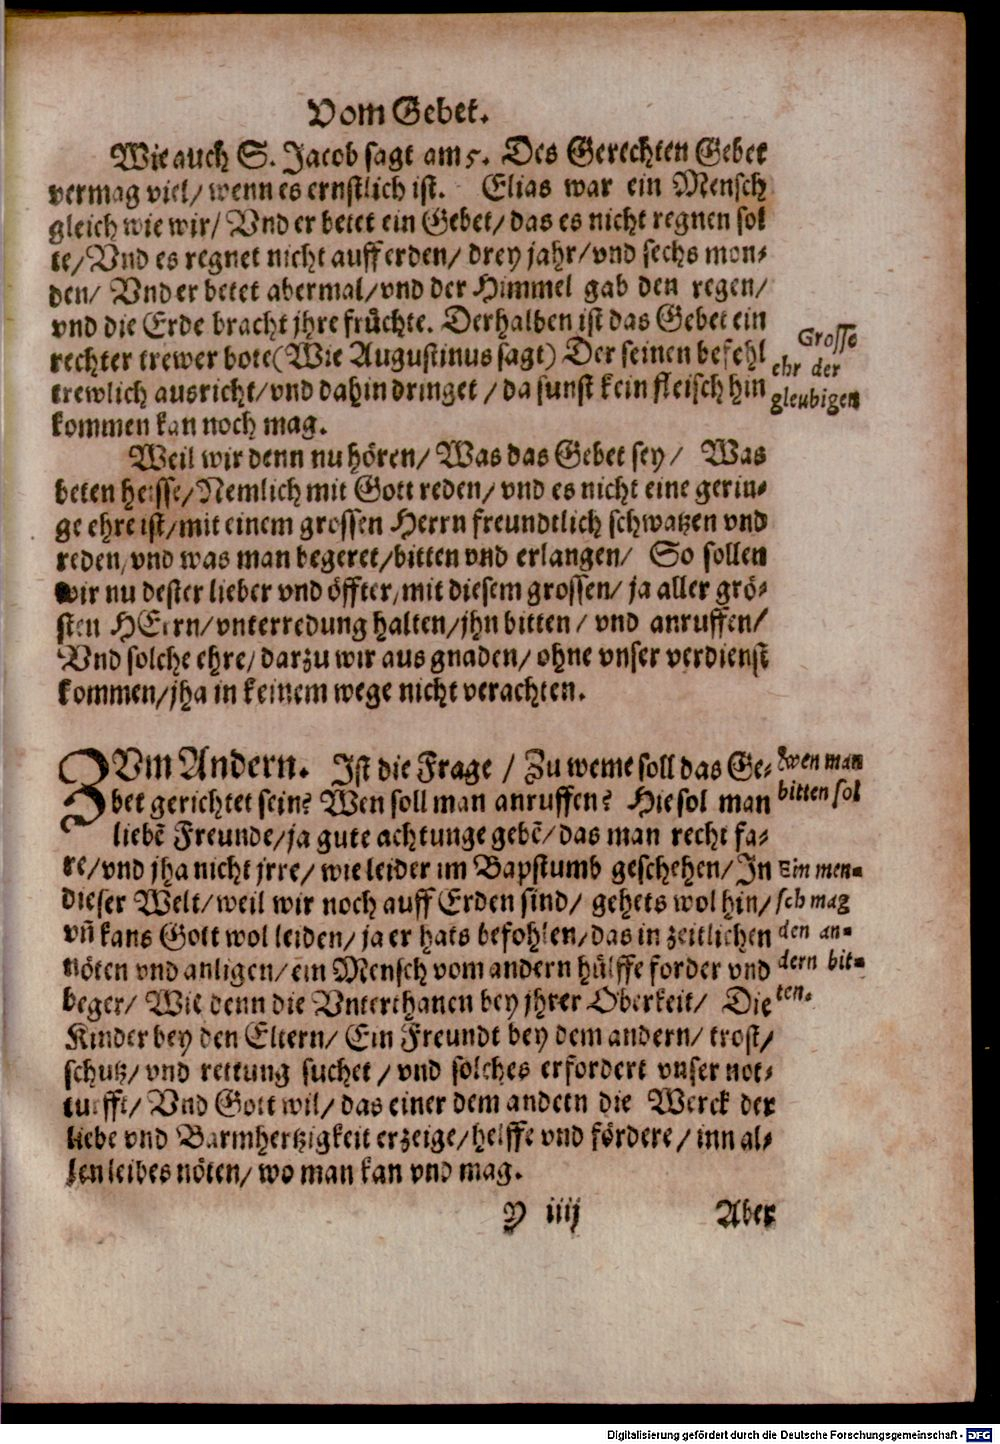 Vom Gebet.
Wie auch S. Jacob sagt am 5. Des Gerechten Gebet
vermag viel/ wenn es ernstlich ist. Elias war ein Mensch
gleich wie wir/ Vnd er betet ein Gebet/ das es nicht regnen sol
te/ Vnd es regnet nicht auff erden/ drey jahr/ vnd sechs mon-
den/ Vnd er betet abermal/ vnd der Himmel gab den regen/
vnd die Erde bracht jhre früchte. Derhalben ist das Gebet ein
rechter trewer bote (Wie Augustinus sagt) Der seinen befehl
trewlich ausricht/ vnd dahin dringet / da sunst kein fleisch hin
kommen kan noch mag.
Grosse
ehr der
gleubigen
Weil wir denn nu hören/ Was das Gebet sey/ Was
beten heisse/ Nemlich mit Gott reden/ vnd es nicht eine gerin-
ge ehre ist/ mit einem grossen Herrn freundtlich schwatzen vnd
reden/ vnd was man begeret/ bitten vnd erlangen/ So sollen
wir nu dester lieber vnd öffter/ mit diesem grossen/ ja aller grö-
sten HErrn/ vnterredung halten/ jhn bitten / vnd anruffen/
Vnd solche ehre/ darzu wir aus gnaden/ ohne vnser verdienst
kommen/ jha in keinem wege nicht verachten.
ZVm Andern. Ist die Frage / Zu weme soll das Ge-
bet gerichtet sein? Wen soll man anruffen? Hie sol man
liebē Freunde/ ja gute achtunge gebē/ das man recht fa-
re/ vnd jha nicht jrre/ wie leider im Bapstumb geschehen/ In
dieser Welt/ weil wir noch auff Erden sind/ gehets wol hin/
vñ kans Gott wol leiden/ ja er hats befohlen/ das in zeitlichen
nöten vnd anligen/ ein Mensch vom andern hülffe forder vnd
beger/ Wie denn die Vnterthanen bey jhrer Oberkeit/ Die
Kinder bey den Eltern/ Ein Freundt bey dem andern/ trost/
schutz/ vnd rettung suchet / vnd solches erfordert vnser not-
turfft/ Vnd Gott wil/ das einer dem andern die Werck der
liebe vnd Barmhertzigkeit erzeige/ helffe vnd fördere/ inn al-
len leibes nöten/ wo man kan vnd mag.
Zwen man
bitten sol
Ein men-
sch mag
den an-
dern bit-
ten.
Y iiij Aber
Digitalisierung gefördert durch die Deutsche Forschungsgemeinschaft - DFG